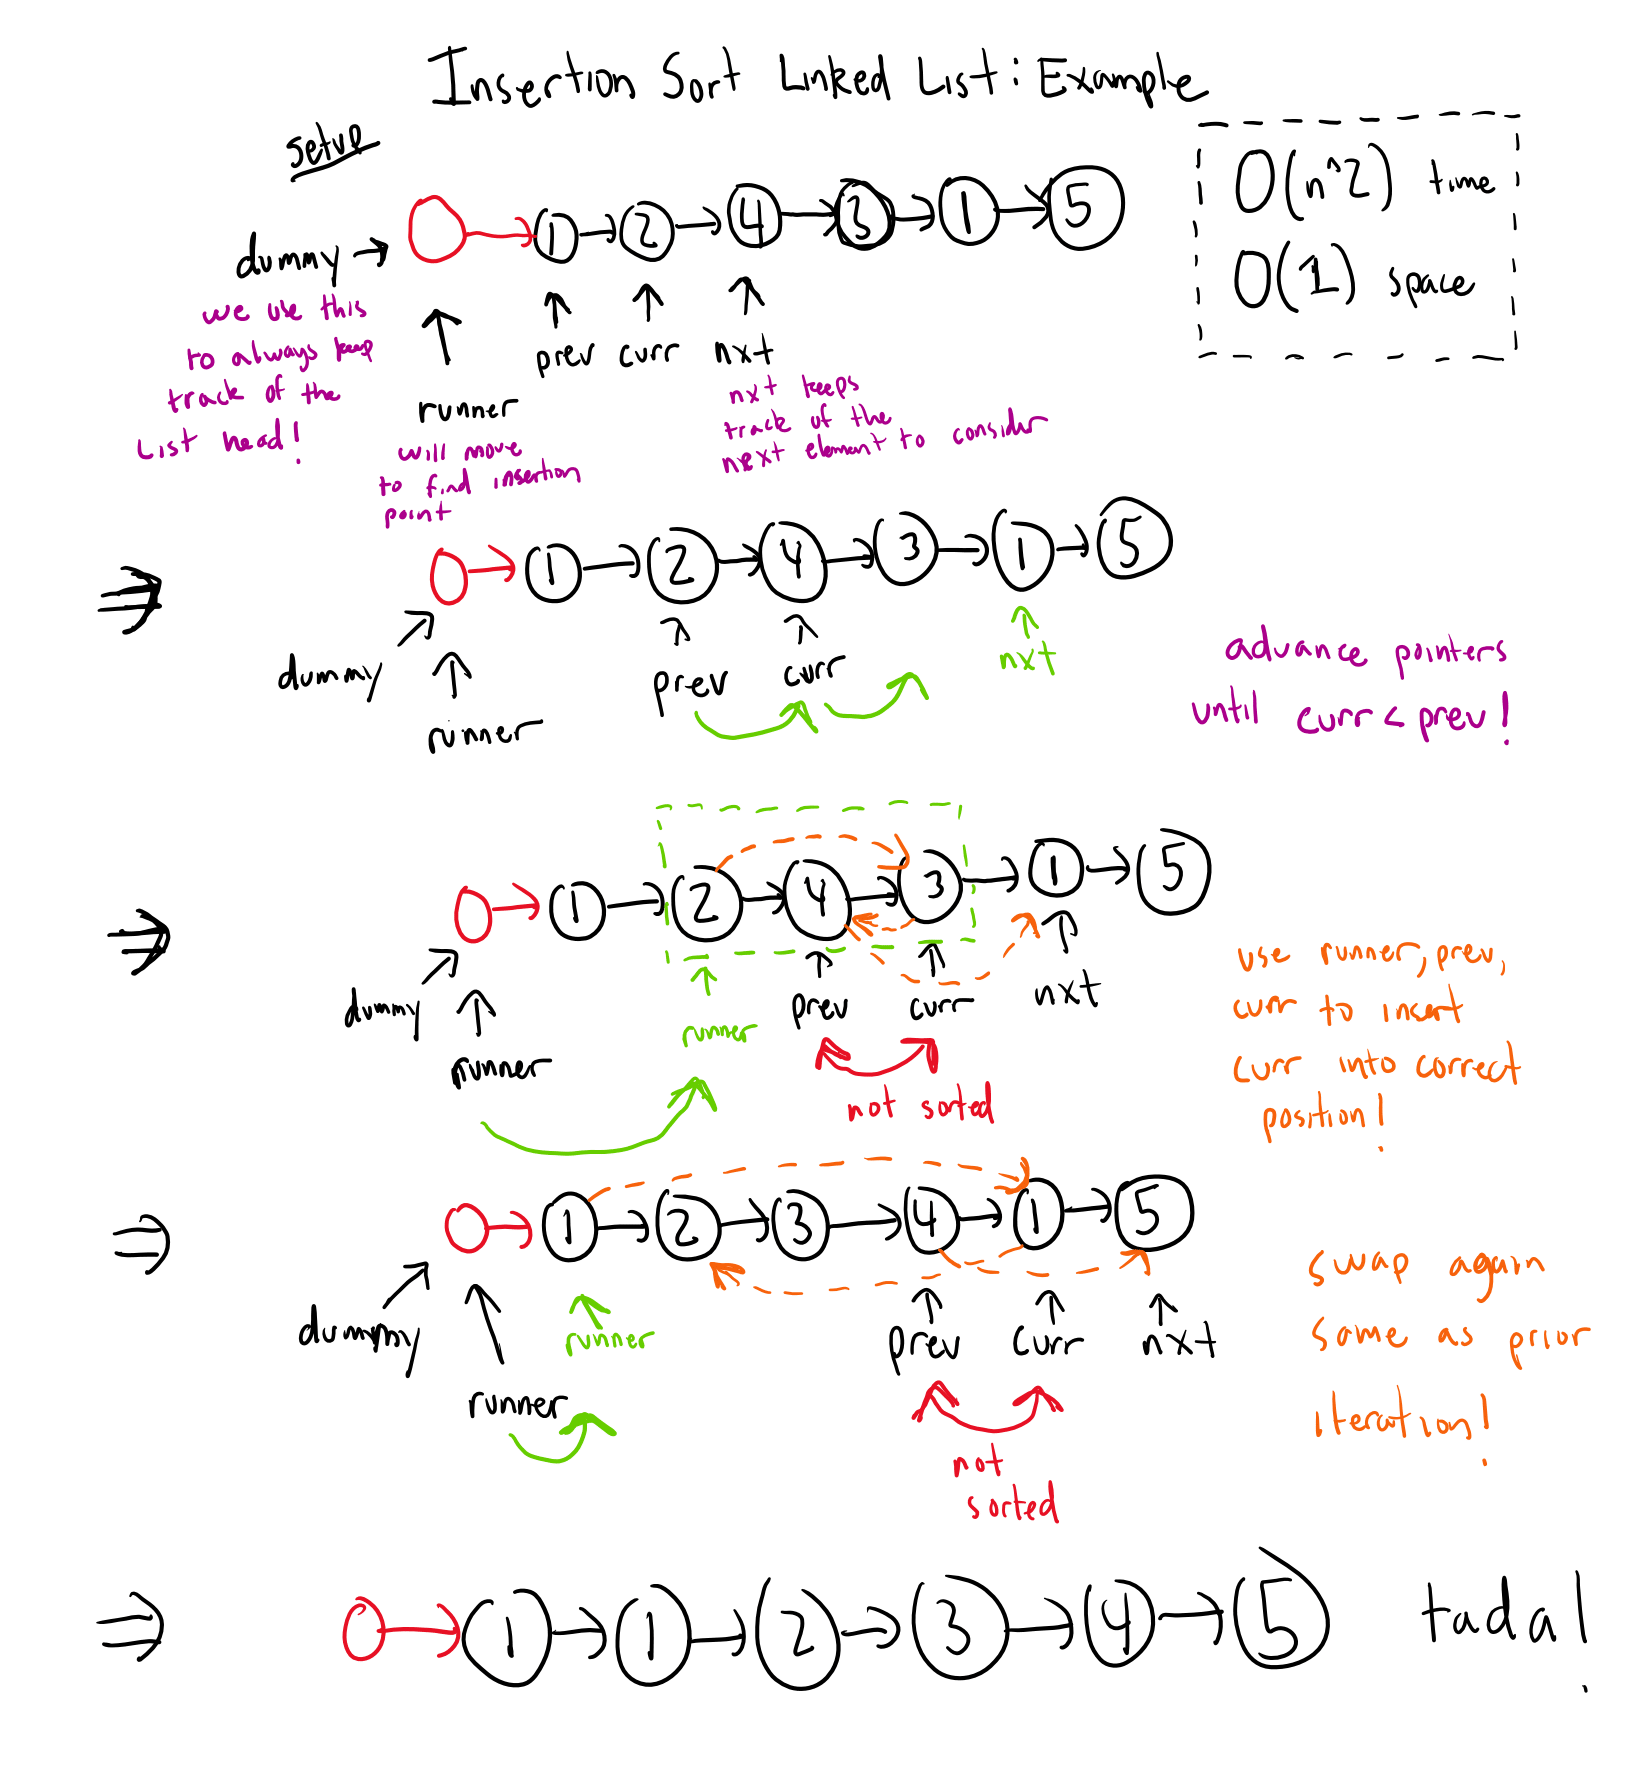 Insertion Sort Linked List: Example
setup
O(n^2) time
O(1) space
1 2 4 3 1 5
dummy
we use this
to always keep
track of the
List head!
runner
will move
to find insertion
point
prev curr nxt
nxt keeps
track of the
next element to consider
1 2 4 3 1 5
dummy
runner
prev
curr
nxt
advance pointers
until curr < prev!
1 2 4 3 1 5
dummy
runner
runner
prev
curr
nxt
not sorted
use runner, prev,
curr to insert
curr into correct
position!
1 2 3 4 1 5
dummy
runner
runner
prev curr nxt
not
sorted
swap again
same as prior
iteration!
1 1 2 3 4 5 tada!